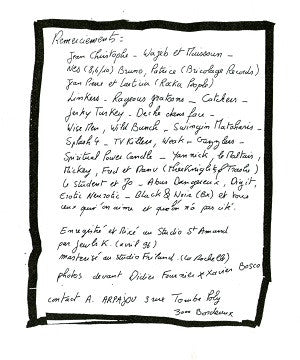 Remerciements :
Jean Christophe - Wazeb et Moussoun -
Nes (8,6/10) Bruno, Patrice (Bricolage Records)
Jean Pierre et Laetitia (Rocka People)
Linkers - Rageous gratoons - Catchers -
Jerky Turkey - Dèche dans face -
Wise Men, Wild Bunch - Swingin Matahories -
Splash 4 - TV Killers, Weak - Gazzlers -
Spiritual Power Candle - Yannick, le Rostam,
Mickey, Fred et Manu
le student et Jo, Abus Dangereux, Digit,
Erotic Neurotic - Black & Noir (Bx) et tous
ceux qu'on aime et qu'on n'a pas cité.
Enregistré et Mixé au Studio St Amand
par Jeuls K. (avril 96)
masterisé au studio Friland. (La Rochelle)
photos devant Didier Fournier x Xavier Bosco
contact A. ARPAJOU 3 rue Tombe Loly
3000 Bordeaux